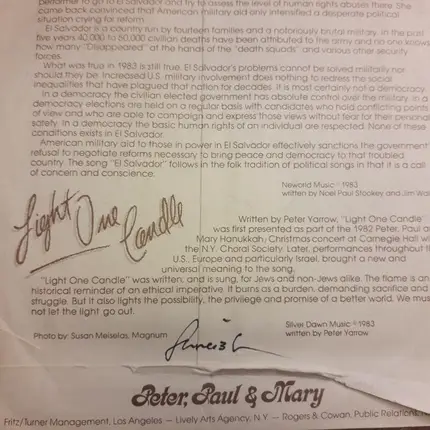 performer to go to El Salvador and try to assess the level of human rights abuses there. She
came back convinced that American military aid only intensified a desperate political
situation crying for reform.
El Salvador is a country run by fourteen families and a notoriously brutal military. In the past
five years 40,000 to 50,000 civilian deaths have been attributed to the army and no one knows
how many "Disappeared" at the hands of the "death squads" and various other security
forces.
What was true in 1983 is still true. El Salvador's problems cannot be solved militarily nor
should they be. Increased U.S. military involvement does nothing to redress the social
inequalities that have plagued that nation for decades. It is most certainly not a democracy.
In a democracy the civilian elected government has absolute control over the military. In a
democracy elections are held on a regular basis with candidates who hold conflicting points
of view and who are able to campaign and express those views without fear for their personal
safety. In a democracy the basic human rights of an individual are respected. None of these
conditions exists in El Salvador.
American military aid to those in power in El Salvador effectively sanctions the government
refusal to negotiate reforms necessary to bring peace and democracy to that troubled
country. The song "El Salvador" follows in the folk tradition of political songs in that it is a call
of concern and conscience.
Neworld Music 1983
written by Noel Paul Stookey and Jim Wa
Light One Candle
Written by Peter Yarrow, "Light One Candle"
was first presented as part of the 1982 Peter, Paul a
Mary Hanukkah/Christmas concert at Carnegie Hall wi
the N.Y. Choral Society. Later, performances throughout t
U.S., Europe and particularly Israel, brought a new and
universal meaning to the song.
"Light One Candle" was written, and is sung, for Jews and non-Jews alike. The flame is an
historical reminder of an ethical imperative. It burns as a burden, demanding sacrifice and
struggle. But it also lights the possibility, the privilege and promise of a better world. We mus
not let the light go out.
Silver Dawn Music 1983
written by Peter Yarrow
Photo by: Susan Meiselas, Magnum
Peter, Paul & Mary
Fritz/Turner Management, Los Angeles — Lively Arts Agency, N.Y. — Rogers & Cowan, Public Relations